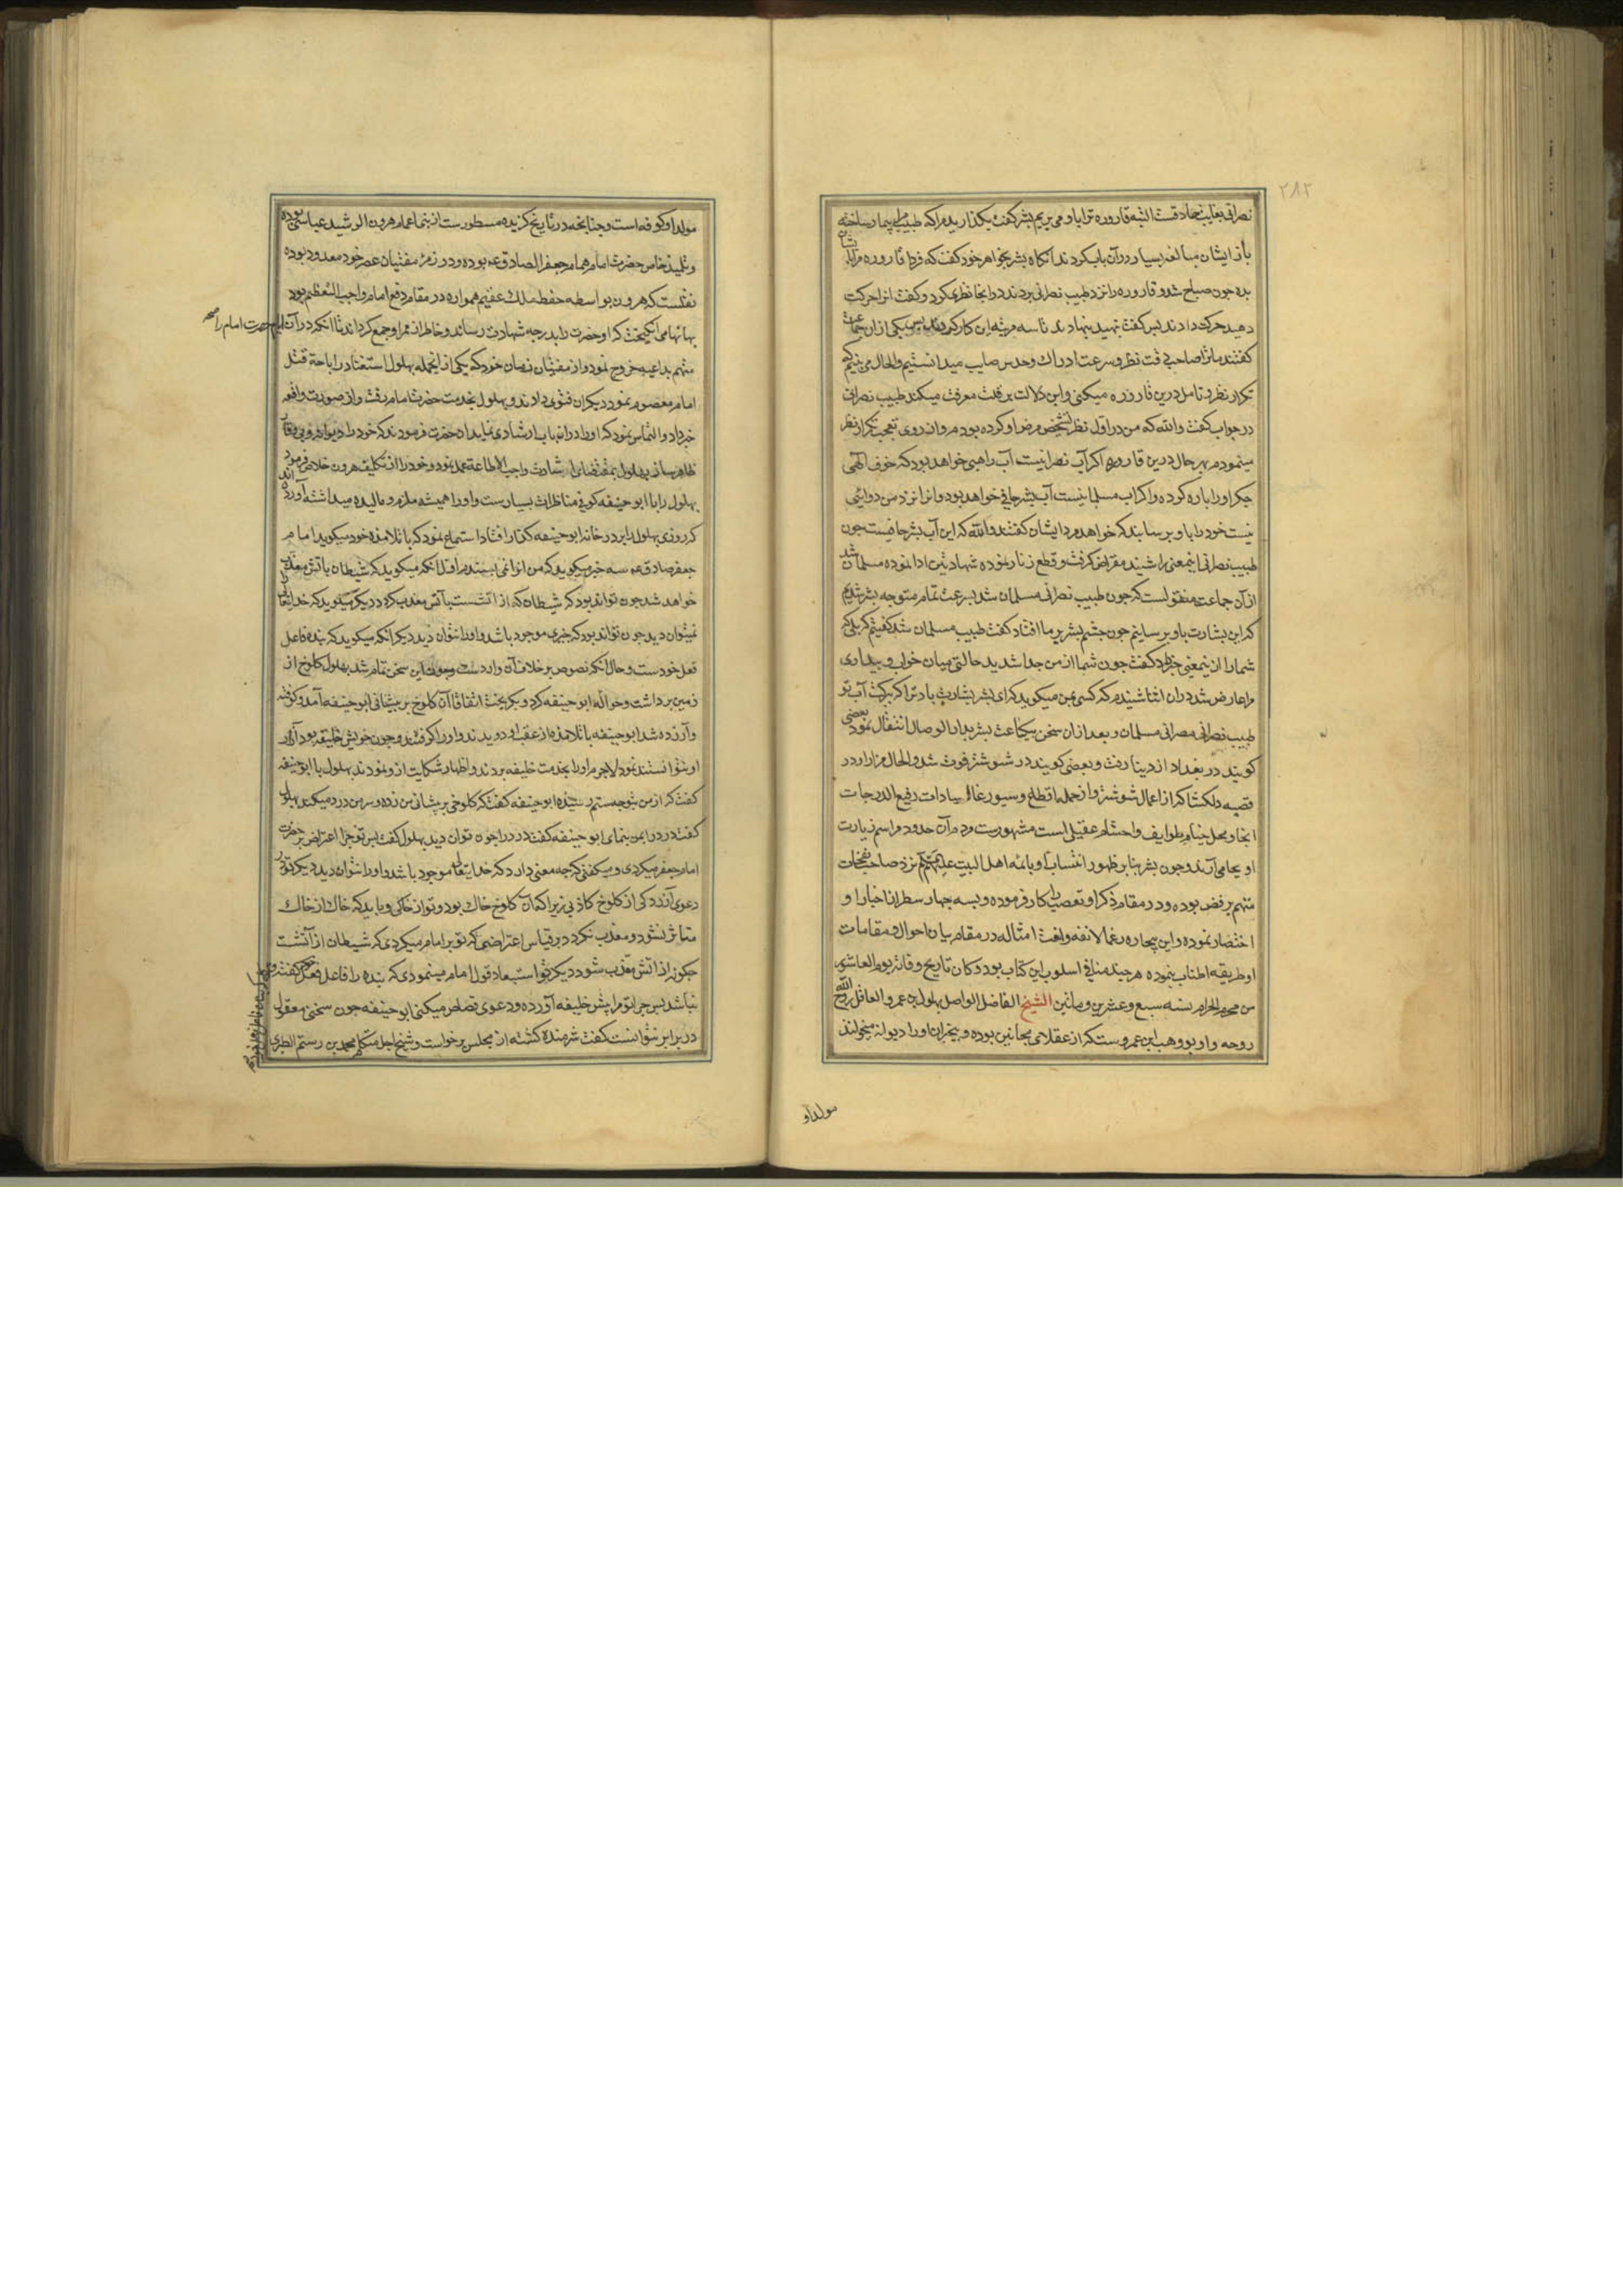 ۲۸۲
نصرانی بغایت حاذقست البته قاروره ترا باو می بریم بشر گفت بگذارید مرا که طبیب مرا بیمار ساخته
باز ایشان مبالغه بسیار در آن باب کردند آنگاه بشر بخواهر خود گفت که فردا قاروره مرا بایشان
بده چون صباح شد و قاروره را نزد طبیب نصرانی بردند در انجا نظری کرد و گفت انرا حرکت
دهید حرکت دادند پس گفت بنهید بنهادند تا سه مرتبه این کار کردند پس یکی از ان جماعت
گفتند ما ترا صاحب دقت نظر و سرعت ادراک و حدس صایب میدانستیم و الحال می بینیم که
تکرار نظر و تامل درین قاروره میکنی و این دلالت بر قلت معرفت میکند طبیب نصرانی
در جواب گفت والله که من در اول نظر تشخیص مرض او کرده بودم و از روی تعجب تکرار نظر
مینمودم بهر حال درین قاروره اگر آب نصرانیست آب راهبی خواهد بود که خوف الهی
جگر او را پاره کرده و اگر آب مسلمانیست آب بشر حافی خواهد بود و انرا نزد من دوائی
نیست خود را باو برسانید که خواهد مرد ایشان گفتند والله که این آب بشر حافیست چون
طبیب نصرانی اینمعنی را شنید مقراض گرفت و قطع زنار نموده شهادتین ادا نموده مسلمان شد
از آن جماعت منقولست که چون طبیب نصرانی مسلمان شد بسرعت تمام متوجه بشر شدیم
که این بشارت باو برسانیم چون چشم بشر بر ما افتاد گفت طبیب مسلمان شد گفتیم که بلی که
شما را ازینمعنی خبر داد گفت چون شما از من جدا شدید حالتی میان خواب و بیداری
مرا عارض شد در ان اثنا شنیدم که کسی بمن میگوید که ای بشر بشارت باد ترا که ببرکت آب تو
طبیب نصرانی مسلمان و بعد ازان سخن بیکساعت بشر بدار الوصال انتقال نمود بعضی
گویند در بغداد از دنیا رفت و بعضی گویند در شوشتر فوت شد و الحال مزار او در
قصبه دلکشا که از اعمال شوشتر و از جمله اقطاع و سیورغال سادات رفیع الدرجات
انجا و محل خیام طوایف و احشام عقیلی است مشهورست و مردم آن حدود مراسم زیارت
او بجا می آرند و چون بشر بنابر ظهور انتساب او بائمه اهل البیت علیهم السلام نزد صاحب نفحات
متهم برفض بوده و در مقام ذکر او تعصب را کار فرموده و بسه چهار سطر از اخبار او
اختصار نموده و این بیچاره رغما لانفه و انف امثاله در مقام بیان احوال و مقامات
او طریقه اطناب پیموده هر چند منافی اسلوب این کتاب بود و کان تاریخ وفاته یوم العاشر
من محرم الحرام سنه سبع و عشرین و مأتین الشیخ الفاضل الواصل بهلول بن عمرو العاقل روح الله
روحه و او بو وهب ابن عمروست که از عقلای مجانین بوده و بیخبران او را دیوانه میخوانند
مولد او
مولد او کوفه است و چنانچه در تاریخ گزیده مسطورست از بنی اعمام هرون الرشید عباسی بوده
و تلمیذ خاص حضرت امام همام جعفر الصادق عم بوده و در زمره مفتیان عصر خود معدود بوده
نقلست که هرون بواسطه حفظ ملک عقیم همواره در مقام دفع امام واجب التعظیم بود
بهانها می انگیخت که او حضرت را بدرجه شهادت رساند و خاطر از ممر او جمع گرداند تا انکه در آن ایام حضرت امام را
متهم بداعیه خروج نمود و از مفتیان زمان خود که یکی از انجمله بهلول استفتا در اباحه قتل
امام معصوم نمود دیگران فتوی دادند و بهلول بخدمت حضرت امام رفت و از صورت واقعه
خبر داد و التماس نمود که او را دران باب ارشادی نماید انحضرت فرمودند که خود را دیوانه و بی وقار
ظاهر سازد بهلول بمقتضای اشارت واجب الاطاعة عمل نمود و خود را از تکلیف هرون خلاص نمود
بهلول را با ابو حنیفه کوفی مناظرات بسیارست و او را همیشه ملزم و مالیده میداشته آورده اند
که روزی بهلول را بر در خانه ابو حنیفه گذار افتاد استماع نمود که با تلامذه خود میگوید امام
جعفر صادق عم سه خبر میگوید که من انرا نمی پسندم اول انکه میگوید که شیطان باتش معذب
خواهد شد چون تواند بود که شیطان که از اتشست باتش معذب گردد دیگر میگوید که خدایتعالی را
نمیتوان دید چون تواند بود که چیزی موجود باشد و او را نتوان دید دیگر انکه میگوید که بنده فاعل
فعل خودست و حال انکه نصوص بر خلاف آن واردست و چون این سخن تمام شد بهلول کلوخ از
زمین برداشت و حواله ابو حنیفه کرد و بگریخت اتفاقا آن کلوخ بر پیشانی ابو حنیفه آمد و کوفته
و آزرده شد ابو حنیفه با تلامذه از عقب او دویدند و او را گرفتند و چون خویش خلیفه بود آزار
او نتوانستند نمود لاجرم او را بخدمت خلیفه بردند و اظهار شکایت از و نمودند بهلول با ابو حنیفه
گفت که از من بتو چه ستم رسیده ابو حنیفه گفت که کلوخی بر پیشانی من زده و سر من درد میکند بهلول
گفت درد را بمن بنمای ابو حنیفه گفت درد را چون توان دید بهلول گفت پس تو چرا اعتراض بر حضرت
امام جعفر میکردی و میگفتی که چه معنی دارد که خدایتعالی موجود باشد و او را نتوان دید دیگر تو در
دعوی آزردگی از کلوخ کاذبی زیرا که آن کلوخ خاک بود و تو از خاکی و باید که خاک از خاک
متاثر نشود و معذب نگردد بر قیاس اعتراضی که تو بر امام میکردی که شیطان از آتشست
چگونه از اتش معذب شود دیگر تو استبعاد قول امام مینمودی که بنده را فاعل فعل خود گفته
نباشد پس چرا تو مرا پیش خلیفه آورده و دعوی قصاص میکنی ابو حنیفه چون سخنی معقول
در برابر نتوانست گفت شرمنده گشته از مجلس برخواست و شیخ اجل متکلم محمد بن رستم الطبری